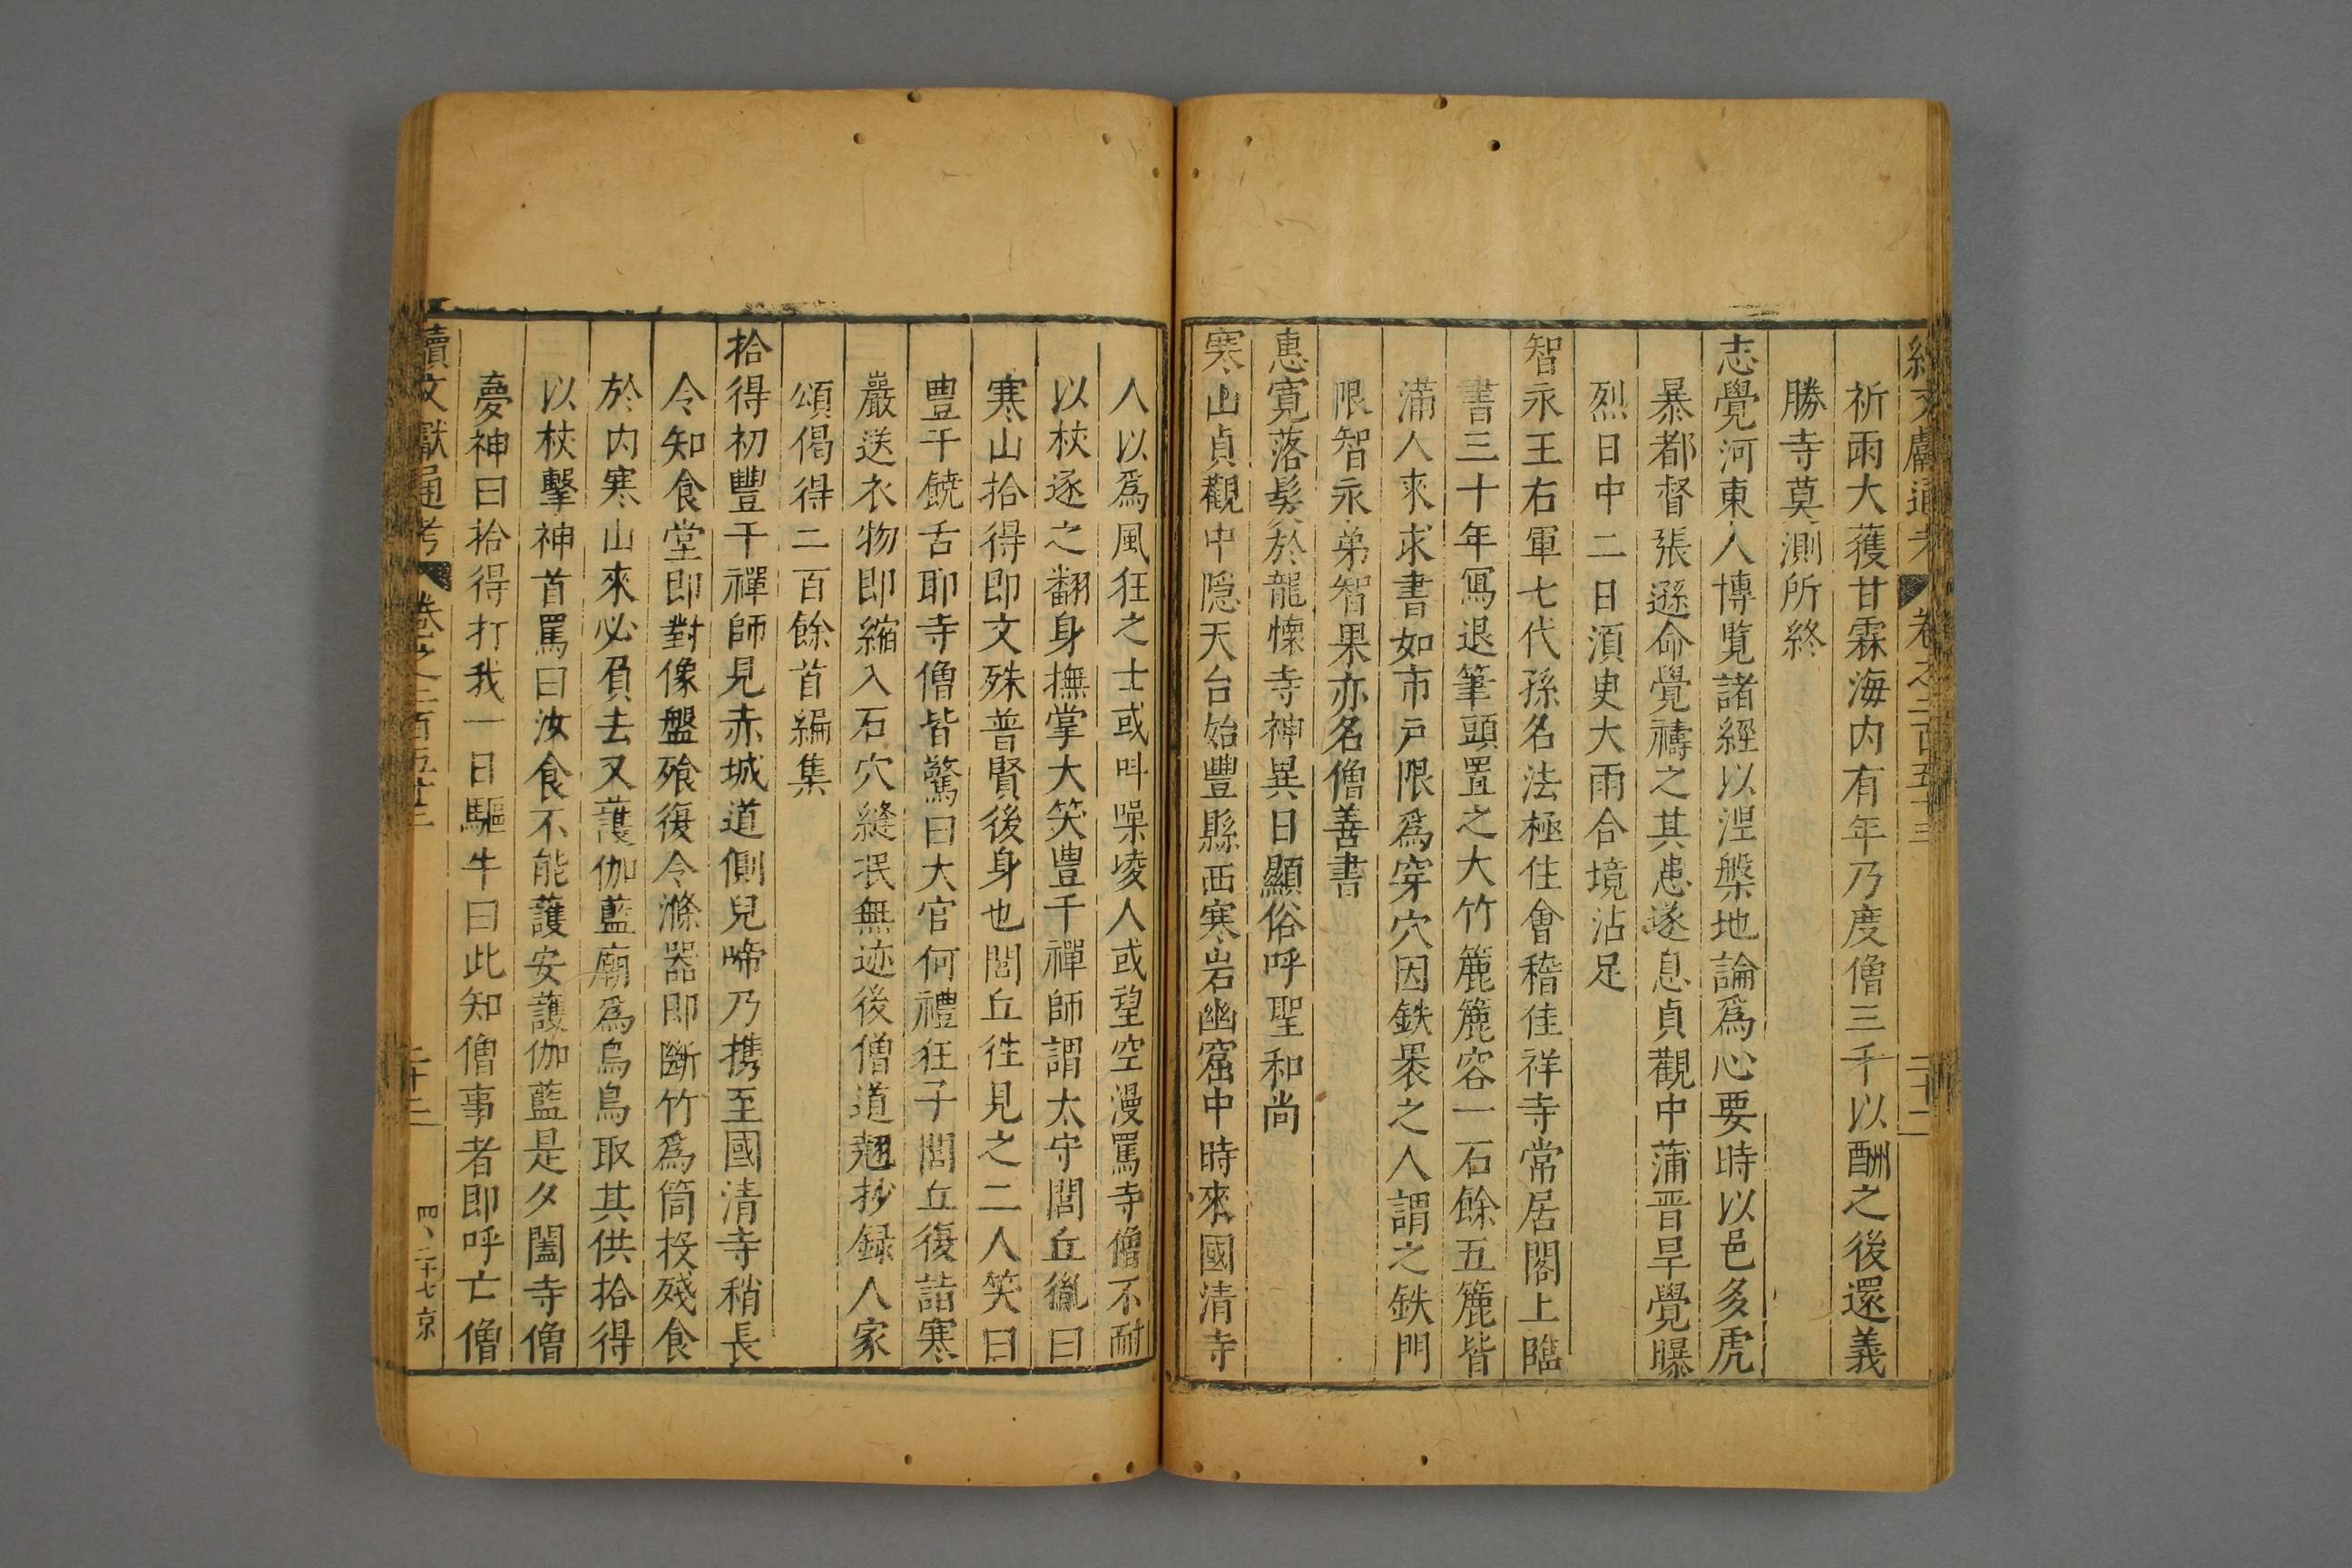 續文獻通考 卷之二百五十三 二十二
祈雨大獲甘霖海内有年乃度僧三千以酬之後還義
勝寺莫測所終
志覺河東人博覧諸經以涅槃地論爲心要時以邑多虎
暴都督張遜命覺禱之其患遂息貞觀中蒲晋旱覺曝
烈日中二日湏臾大雨合境沾足
智永王右軍七代孫名法極住會稽佳祥寺常居閣上臨
書三十年冩退筆頭置之大竹簏簏容一石餘五簏皆
滿人來求書如市戸限爲穿穴因鉄褁之人謂之鉄門
限智永弟智果亦名僧善書
惠寛落髮於龍懷寺神異日顯俗呼聖和尚
寒山貞觀中隠天台始豐縣西寒岩幽窟中時來國清寺
人以爲風狂之士或呌噪凌人或望空漫罵寺僧不耐
以杖逐之翻身撫掌大笑豊干禪師謂太守閭丘胤曰
寒山拾得即文殊普賢後身也閭丘徃見之二人笑曰
豊干饒舌耶寺僧皆驚曰大官何禮狂子閭丘復詣寒
巖送衣物即縮入石穴縫泯無迹後僧道翹抄録人家
頌偈得二百餘首編集
拾得初豐干禪師見赤城道側兒啼乃携至國清寺稍長
令知食堂即對像盤飱復令滌器即斷竹爲筒投殘食
於内寒山來必負去又護伽藍廟爲烏鳥取其供拾得
以杖擊神首罵曰汝食不能護安護伽藍是夕闔寺僧
夢神曰拾得打我一日驅牛曰此知僧事者即呼亡僧
續文獻通考 卷之二百五十三 二十二 四、二十七京